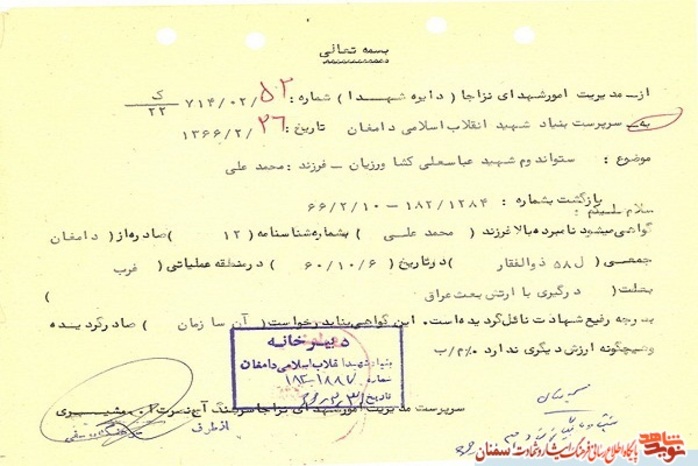 بسمه تعالی
از ـ مدیریت امور شهدای نزاجا ( دایره شهدا ) شماره : ۵۲ / ۰۲ / ۷۱۴ ک ۲۲
به ـ سرپرست بنیاد شهید انقلاب اسلامی دامغان تاریخ : ۲۶ / ۲ / ۱۳۶۶
موضوع : ستواندوم شهید عباسعلی کشاورزیان ـ فرزند : محمد علی
بازگشت بشماره : ۱۸۲/۱۲۸۴ – ۶۶/۲/۱۰
سلام علیکم :
گواهی میشود نامبرده بالا فرزند ( محمد علی ) بشماره شناسنامه ( ۱۲ ) صادره از ( دامغان
جمعی ( ل ۵۸ ذوالفقار ) در تاریخ ( ۶۰/۱۰/۶ ) در منطقه عملیاتی ( غرب
بعلت ( درگیری با ارتش بعث عراق )
بدرجه رفیع شهادت نائل گردیده است . این گواهی بنا بدرخواست ( آن سازمان ) صادر گردیده
و هیچگونه ارزش دیگری ندارد
دبیرخانه
بنیاد شهید انقلاب اسلامی دامغان
شماره
تاریخ
سرپرست مدیریت امور شهدای نزاجا سرهنگ
از طرف
نوید شاهد
پایگاه اطلاع رسانی فرهنگ ایثار و شهادت سمنان